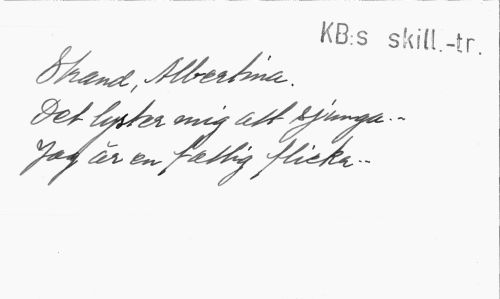 KB:s skill.-tr.
Strand, Albertina.
Det lyster mig att sjunga.-
Jag är en fattig flicka--